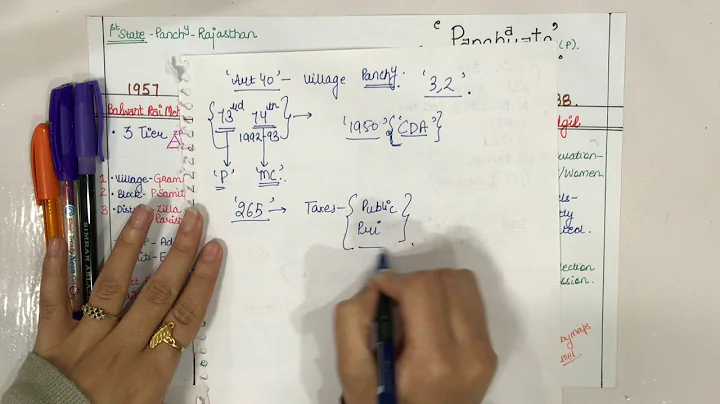 1st State - Panchy - Rajasthan
'Panchayats'
(P).
1957
Balwant Rai Meh
• 3 Tier
1 • Village - Gram
2 • Block - P Samit
3 • Dist - Zilla
Parish
'Art 40' - Village Panchy. '3,2'.
{73rd 74th} →
1992-93
'1950' {'CDA'}
'P' 'MC'.
'265' → Taxes - {Public
Pri}.
SIMRAN AHUJ
/Women
ection
ssion.
by maps